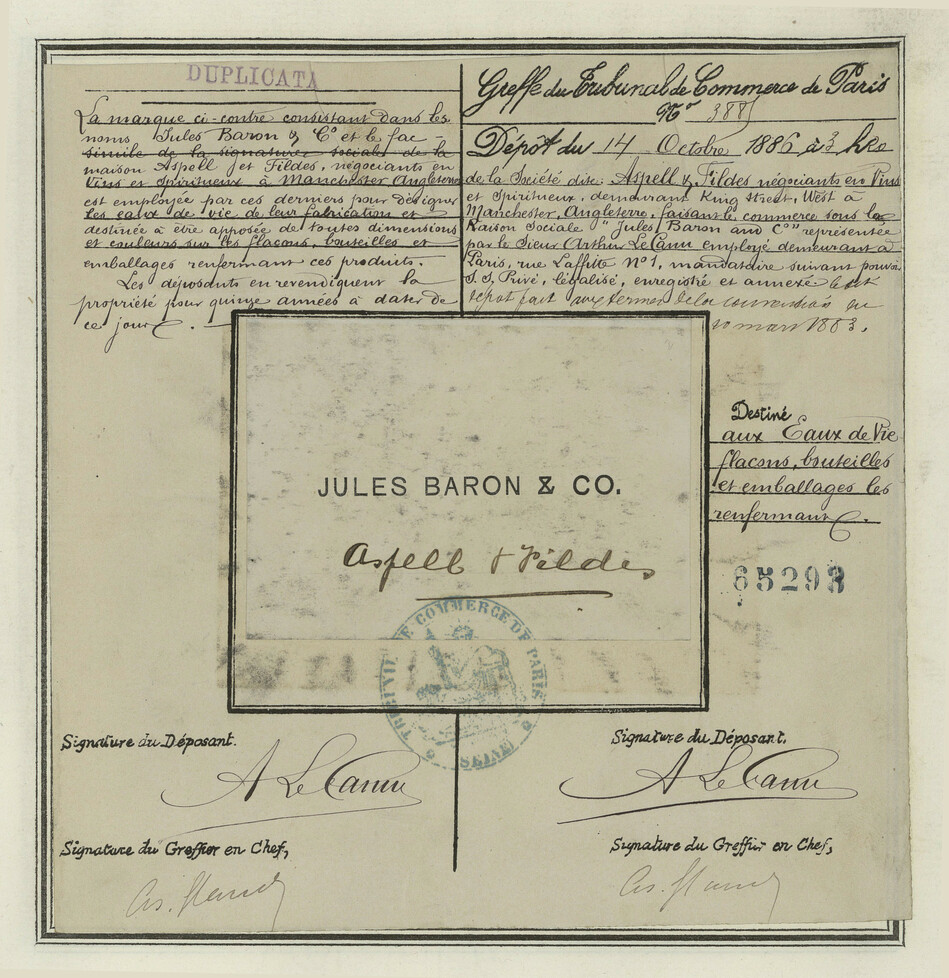 DUPLICATA
La marque ci-contre consistant dans les
noms Jules Baron & Cº et le fac-
simile de la signature sociale de la
maison Aspell et Fildes, négociants en
Vins et Spiritueux à Manchester Angleterre
est employée par ces derniers pour désigner
les eaux de vie de leur fabrication et
destinée à être apposée de toutes dimensions
et couleurs sur les flacons, bouteilles et
emballages renfermant ces produits.
Les déposants en revendiquent la
propriété pour quinze années à dater de
ce jour.
Greffe du Tribunal de Commerce de Paris
Nº 388
Dépôt du 14 Octobre 1886 à 3 hres
de la Société dite: Aspell & Fildes négociants en Vins
et Spiritueux, demeurant King Street, West à
Manchester, Angleterre, faisant le commerce sous la
Raison Sociale "Jules Baron and Cº" représentée
par le Sieur Arthur Le Cann employé demeurant à
Paris, rue Laffitte Nº 1, mandataire suivant pouvoir
S. S. Privé, légalisé, enregistré et annexé
dépôt fait aux termes de la convention du
mars 1883.
JULES BARON & CO.
Aspell & Fildes
Destiné
aux Eaux de Vie
flacons, bouteilles
et emballages les
renfermant
65293
TRIBUNAL DE COMMERCE DE PARIS
(SEINE)
Signature du Déposant.
A Le Cann
Signature du Greffier en Chef,
Signature du Déposant.
A Le Cann
Signature du Greffier en Chef,